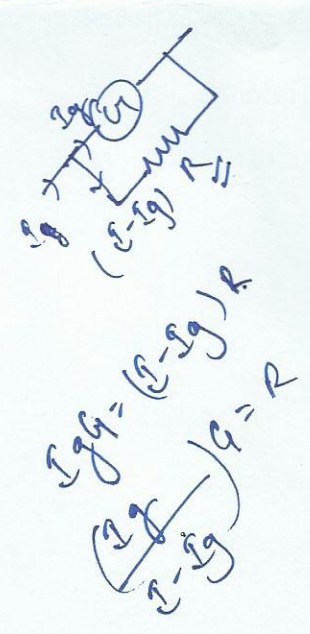 Ig G
Ig
(I-Ig) R
IgG = (I-Ig) R.
(Ig / I-Ig) G = R